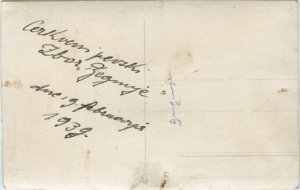 Cerkveni pevski
Zbor, Begunje
dne. 9. februarja
1939.